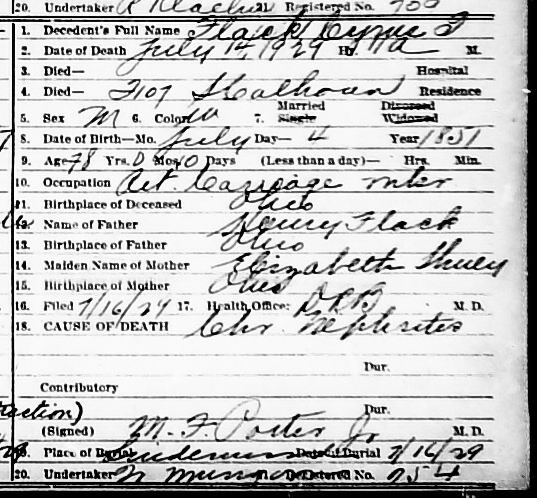 20. Undertaker Registered No. 700
1. Decedent's Full Name Flack Cyrus F
2. Date of Death July 14, 1929 Hr. 11 a M.
3. Died— Hospital
4. Died— 2107 S Calhoun Residence
Married Divorced
5. Sex M 6. Color W 7. Single Widowed
8. Date of Birth—Mo. July Day— 4 Year 1851
9. Age 78 Yrs. 0 Mos. 10 Days (Less than a day)— Hrs. Min.
10. Occupation Ret. Carriage mkr
11. Birthplace of Deceased Ohio
12. Name of Father Henry Flack
13. Birthplace of Father Ohio
14. Maiden Name of Mother Elizabeth
15. Birthplace of Mother Ohio
16. Filed 7/16/29 17. Health Officer M. D.
18. CAUSE OF DEATH Chr Nephritis
Dur.
Contributory
raction) Dur.
(Signed) M. F. Porter Jr M. D.
19. Place of Burial Lindenwood Date of Burial 7/16/29
20. Undertaker Registered No. 754